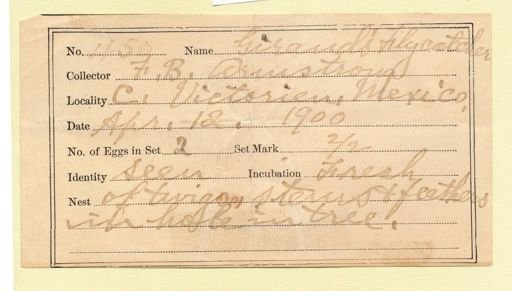 No. 1158 Name Giraud's Flycatcher
Collector F. B. Armstrong
Locality C. Victoria, Mexico,
Date Apr. 12, 1900
No. of Eggs in Set 2 Set Mark 2/2
Identity seen Incubation Fresh
Nest of twigs, stems & feathers
in hole in tree.